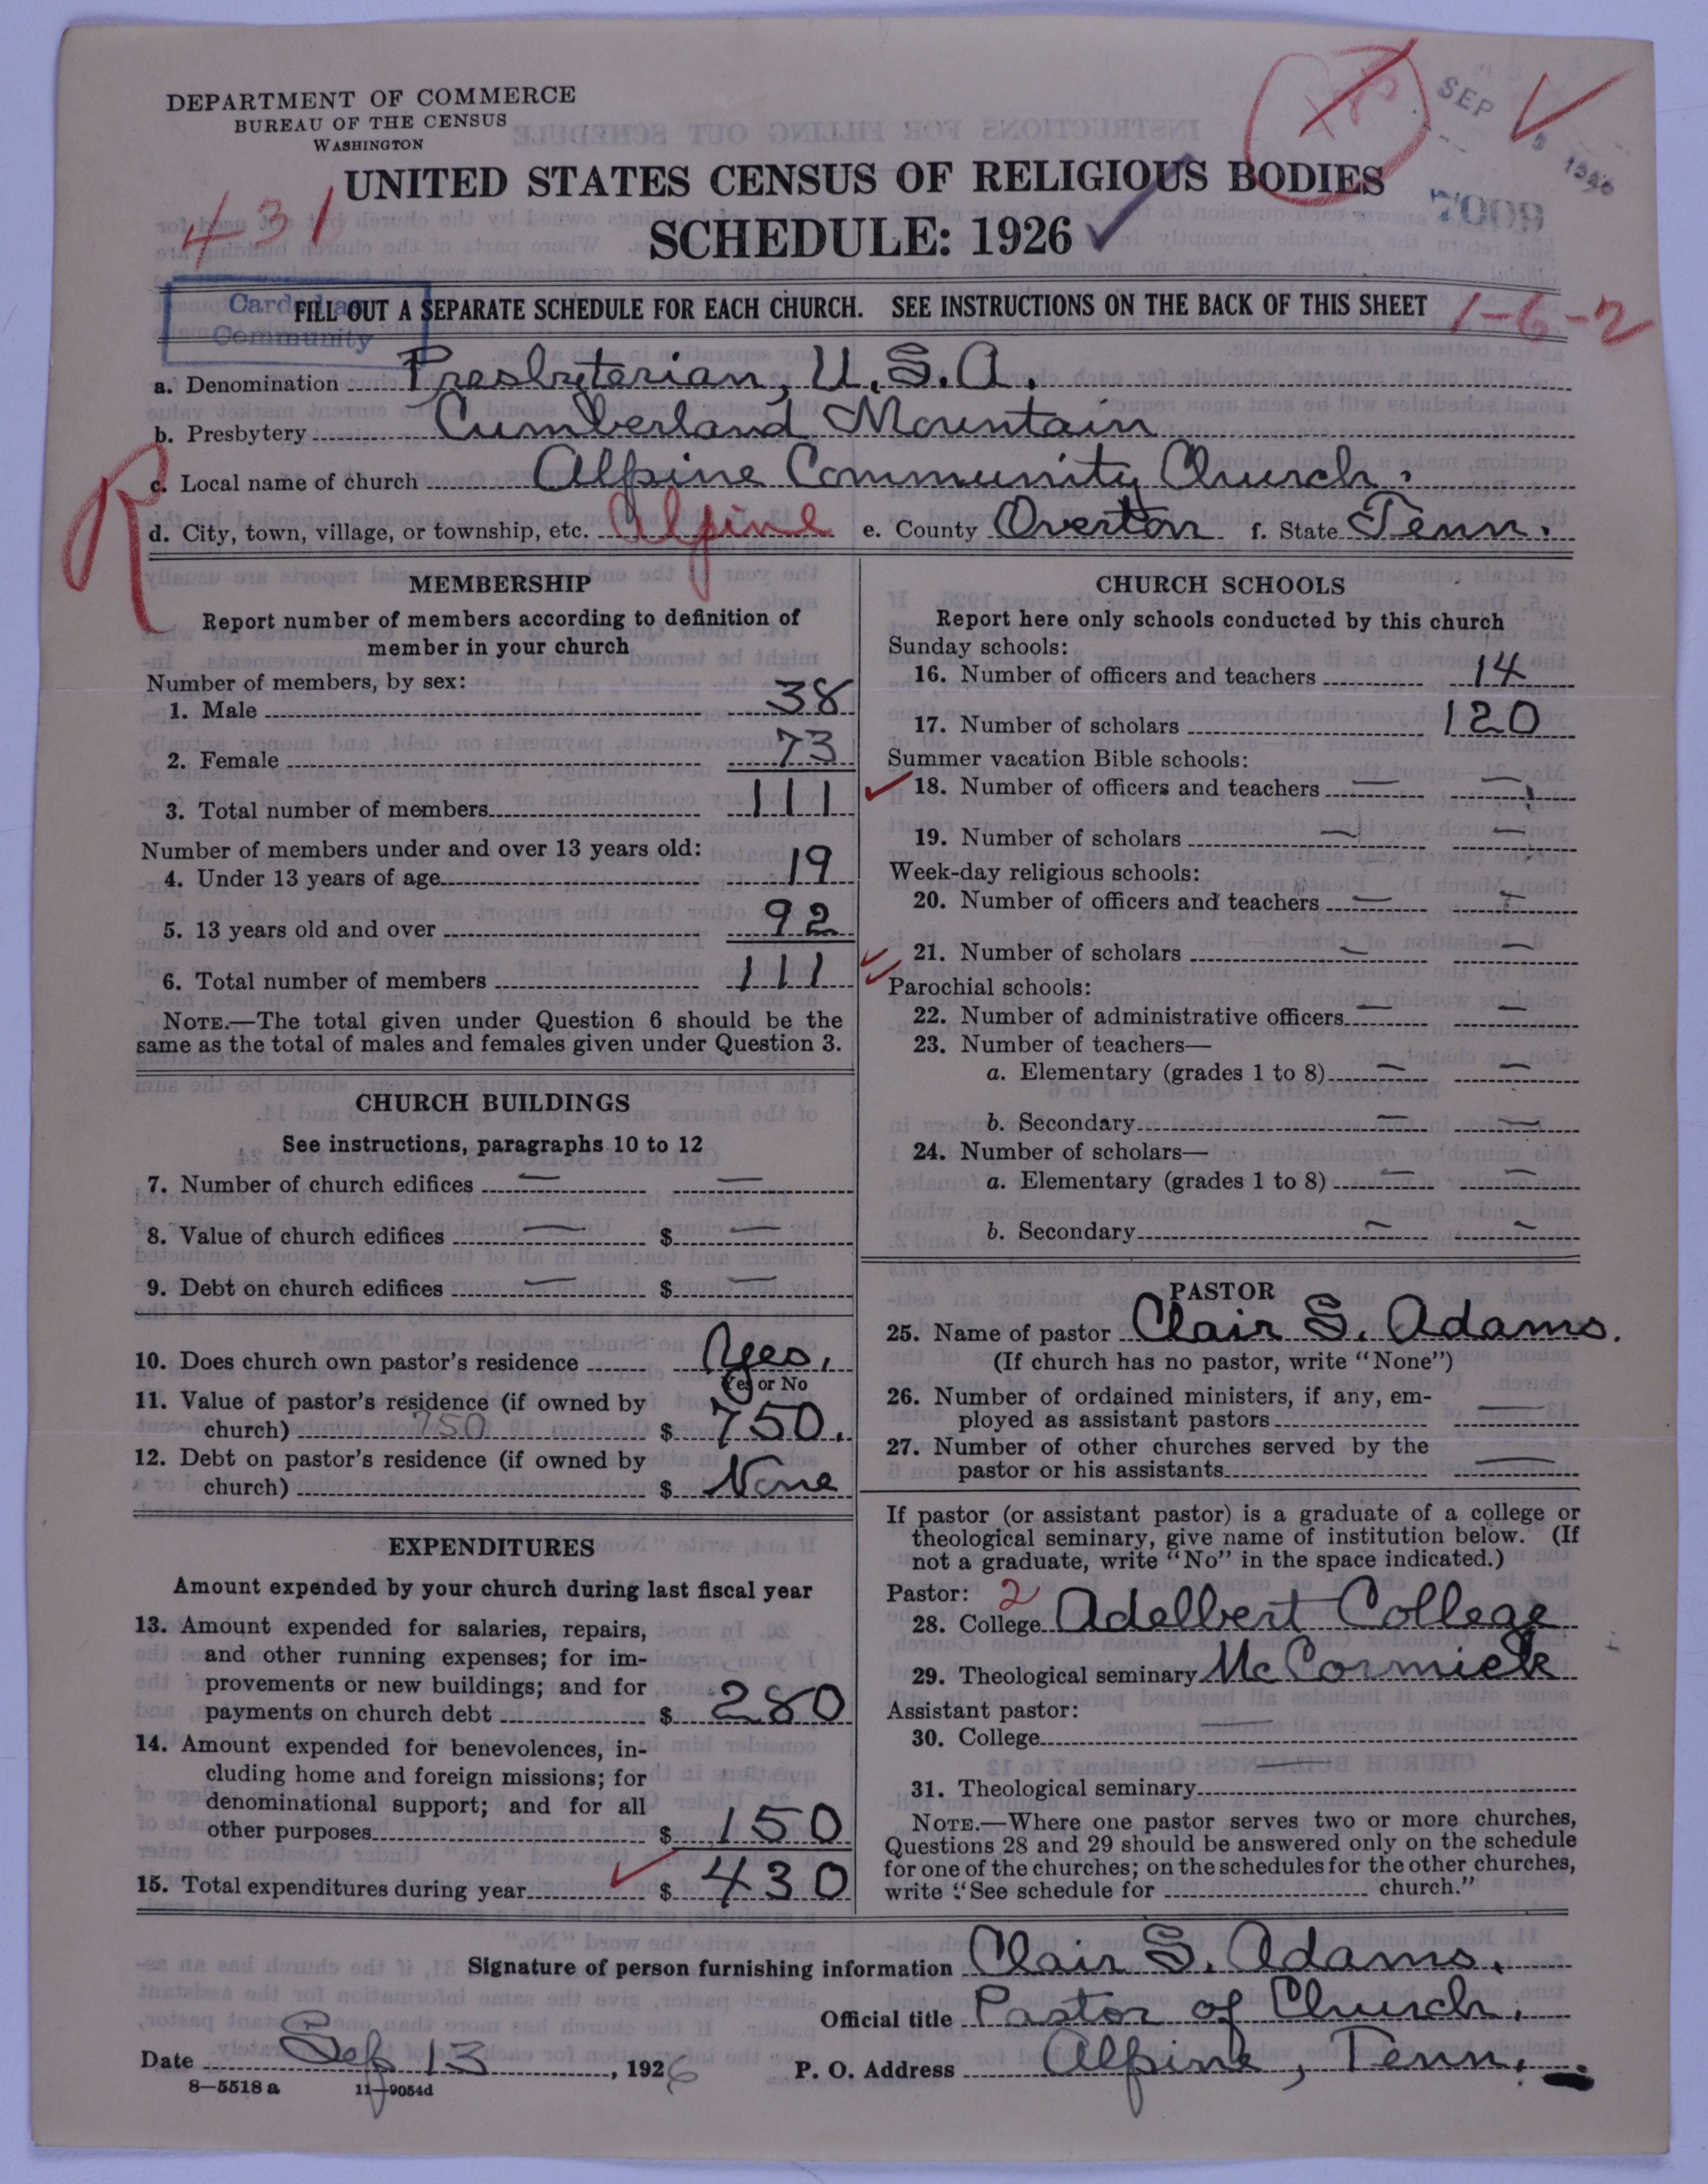 DEPARTMENT OF COMMERCE
BUREAU OF THE CENSUS
WASHINGTON
SEP 1926
7009
UNITED STATES CENSUS OF RELIGIOUS BODIES
431
SCHEDULE: 1926
Carded as
Community
FILL OUT A SEPARATE SCHEDULE FOR EACH CHURCH. SEE INSTRUCTIONS ON THE BACK OF THIS SHEET
1-6-2
a. Denomination Presbyterian, U.S.A.
b. Presbytery Cumberland Mountain
R
c. Local name of church Alpine Community Church.
d. City, town, village, or township, etc. Alpine e. County Overton f. State Tenn.
MEMBERSHIP
Report number of members according to definition of
member in your church
Number of members, by sex:
1. Male 38
2. Female 73
3. Total number of members 111
Number of members under and over 13 years old:
4. Under 13 years of age 19
5. 13 years old and over 92
6. Total number of members 111
NOTE.—The total given under Question 6 should be the
same as the total of males and females given under Question 3.
CHURCH BUILDINGS
See instructions, paragraphs 10 to 12
7. Number of church edifices — —
8. Value of church edifices — $ —
9. Debt on church edifices — $ —
10. Does church own pastor's residence Yes.
Yes or No
11. Value of pastor's residence (if owned by
church) 750 $ 750.
12. Debt on pastor's residence (if owned by
church) $ None
EXPENDITURES
Amount expended by your church during last fiscal year
13. Amount expended for salaries, repairs,
and other running expenses; for im-
provements or new buildings; and for
payments on church debt $ 280
14. Amount expended for benevolences, in-
cluding home and foreign missions; for
denominational support; and for all
other purposes $ 150
15. Total expenditures during year $ 430
CHURCH SCHOOLS
Report here only schools conducted by this church
Sunday schools:
16. Number of officers and teachers 14
17. Number of scholars 120
Summer vacation Bible schools:
18. Number of officers and teachers — —
19. Number of scholars — —
Week-day religious schools:
20. Number of officers and teachers — —
21. Number of scholars — —
Parochial schools:
22. Number of administrative officers — —
23. Number of teachers—
a. Elementary (grades 1 to 8) — —
b. Secondary — —
24. Number of scholars—
a. Elementary (grades 1 to 8) — —
b. Secondary — —
PASTOR
25. Name of pastor Clair S. Adams.
(If church has no pastor, write "None")
26. Number of ordained ministers, if any, em-
ployed as assistant pastors —
27. Number of other churches served by the
pastor or his assistants —
If pastor (or assistant pastor) is a graduate of a college or
theological seminary, give name of institution below. (If
not a graduate, write "No" in the space indicated.)
Pastor: 2
28. College Adelbert College
29. Theological seminary McCormick
Assistant pastor: —
30. College
—
31. Theological seminary
NOTE.—Where one pastor serves two or more churches,
Questions 28 and 29 should be answered only on the schedule
for one of the churches; on the schedules for the other churches,
write "See schedule for church."
Signature of person furnishing information Clair S. Adams.
Official title Pastor of Church.
Date Sep 13, 1926 P. O. Address Alpine, Tenn.
8—5518 a 11—9054d